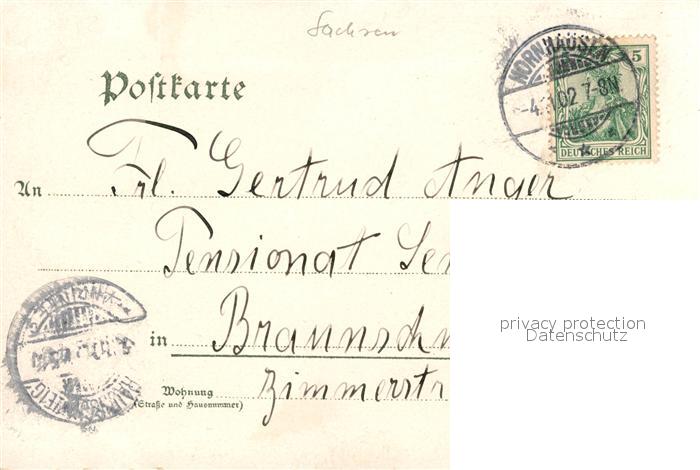 Sachsen
Postkarte
HORNHAUSEN
-4.
02 7-8N
5
DEUTSCHES REICH
An Frl. Gertrud Anger
Pensionat
in Braunschw
Wohnung
(Straße und Hausnummer)
Zimmerstr
privacy protection
Datenschutz